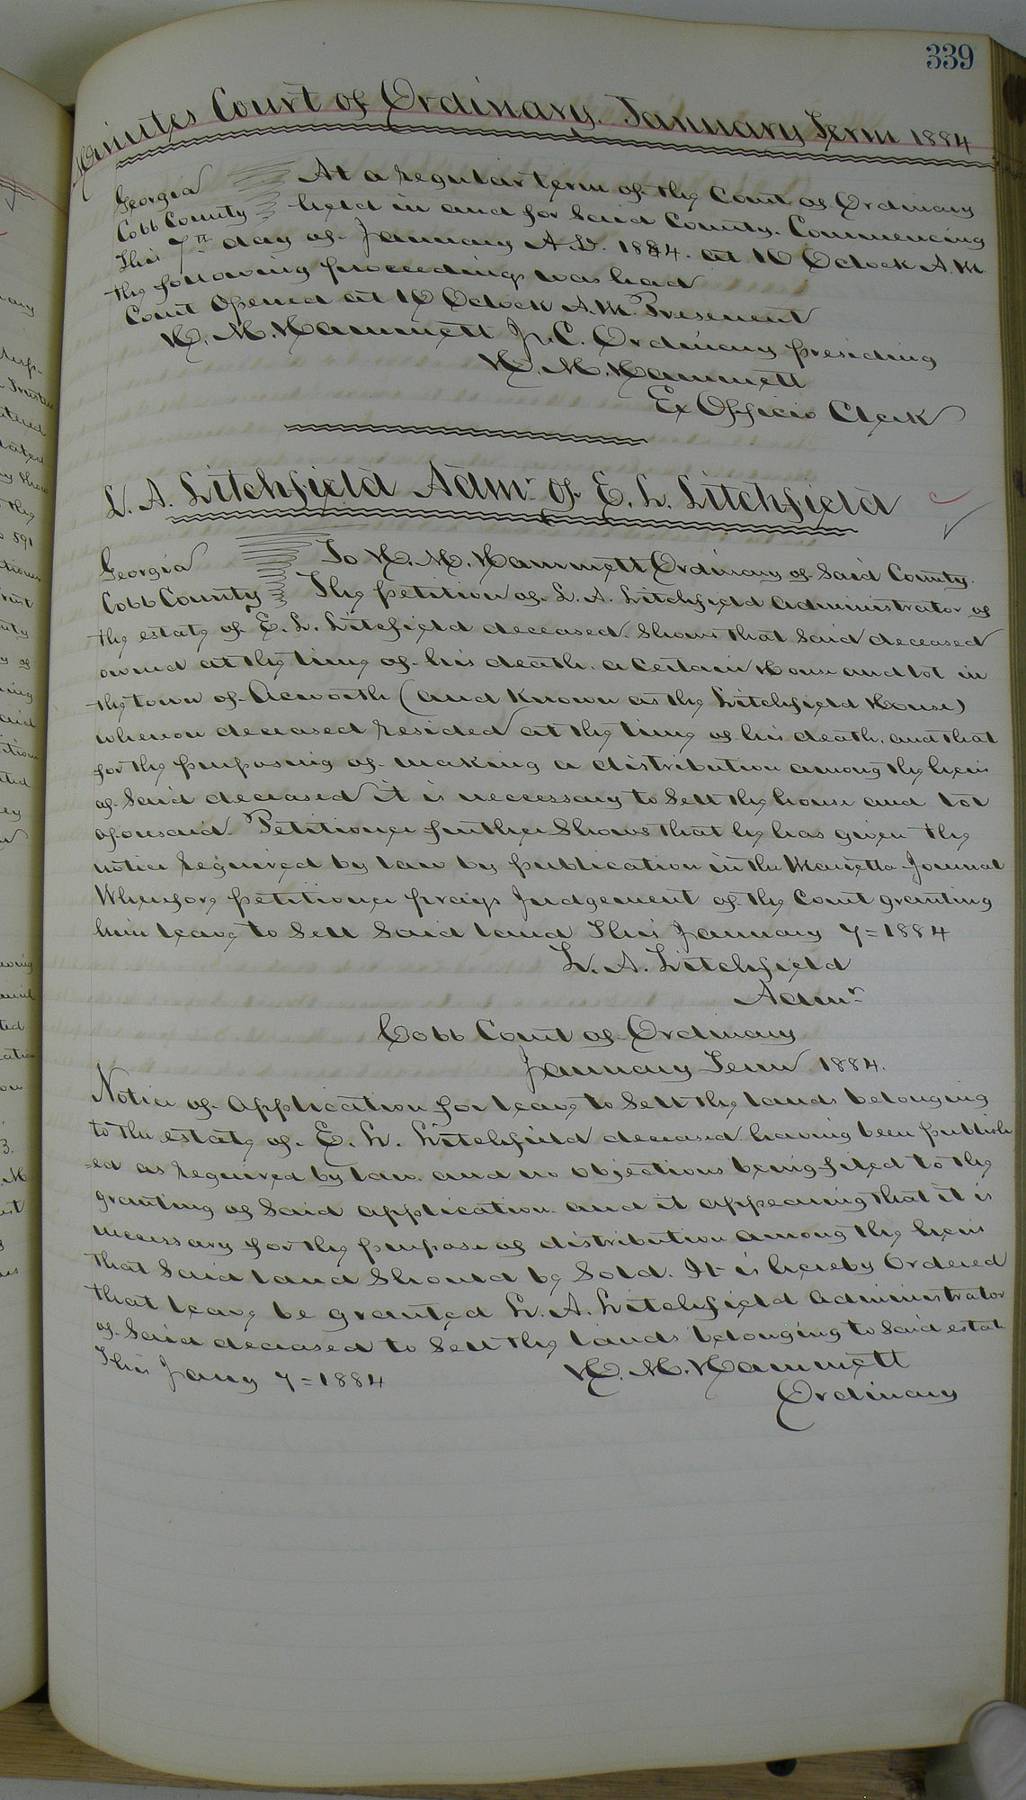 339
Minutes Court of Ordinary. January Term 1884
Georgia At a regular term of the Court of Ordinary
Cobb County held in and for Said County. Commencing
This 7th day of January A.D. 1884. at 10 Oclock A.M
the following proceedings was had
Court Opened at 10 Oclock A.M. Presenent
H. M. Hammett J.C. Ordinary presiding
H. M. Hammett
Ex Officio Clerk
L. A. Litchfield Admr. of E. L. Litchfield
Georgia To H. M. Hammett Ordinary of Said County.
Cobb County The petition of L. A. Litchfield administrator of
the estate of E. L. Litcfield deceased. Shows that Said deceased
owned at the time of his death. a certain House and lot in
the town of Acworth (and Known as the Litchfield House)
whereon deceased resided at the time of his death, and that
for the purposing of making a distribution among the heirs
of Said deceased it is neccessary to Sell the house and lot
aforesaid. Petitioner further Shows that he has given the
notice required by law by publication in the Marietta Journal
Wherefore petitioner prays Judgement of the Court granting
him leave to Sell Said land This January 7=1884
L. A. Litchfield
Admr.
Cobb Court of Ordinary
January Term 1884.
Notice of application for leave to Sell the lands belonging
to the estate of E. L. Litchfield deceased having been publish
=ed as required by law. and no objections being filed to the
granting of Said application. and it appearing that it is
necessary for the purpose of distribution among the heirs
that Said land Should be Sold. It is hereby Ordered
that leave be granted L. A. Litchfield administrator
of Said deceased to Sell the lands belonging to Said estate
This Jany 7=1884 H. M. Hammett
Ordinary